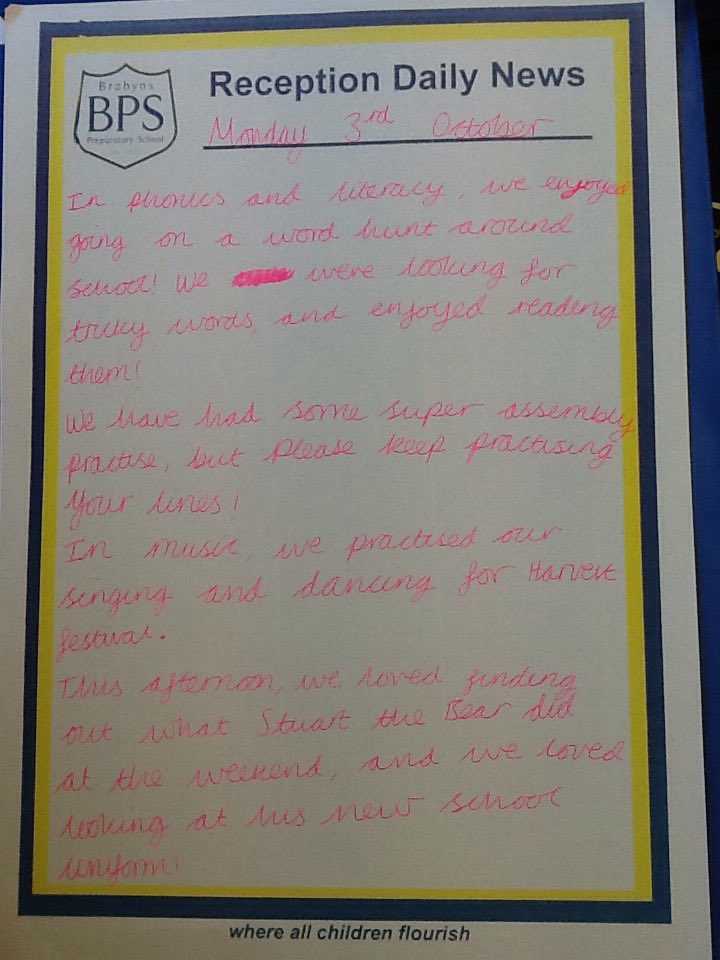 Brabyns
BPS
Preparatory School
Reception Daily News
Monday 3rd October
In phonics and literacy, we enjoyed
going on a word hunt around
school! We were looking for
tricky words, and enjoyed reading
them!
We have had some super assembly
practise, but please keep practising
your lines!
In music, we practised our
singing and dancing for Harvest
festival.
This afternoon, we loved finding
out what Stuart the Bear did
at the weekend, and we loved
looking at his new school
uniform!
where all children flourish